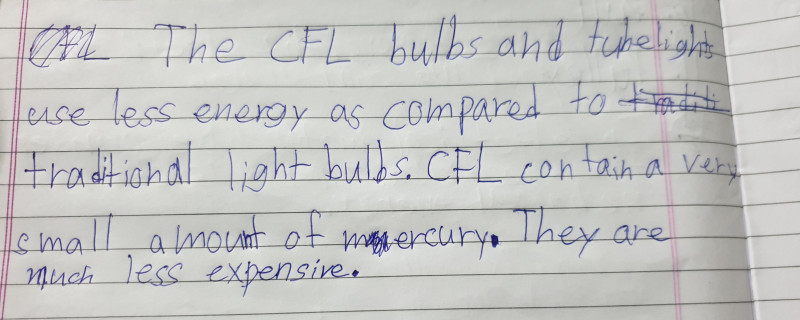 The CFL bulbs and tubelights
use less energy as compared to
traditional light bulbs. CFL contain a very
small amount of mercury. They are
much less expensive.